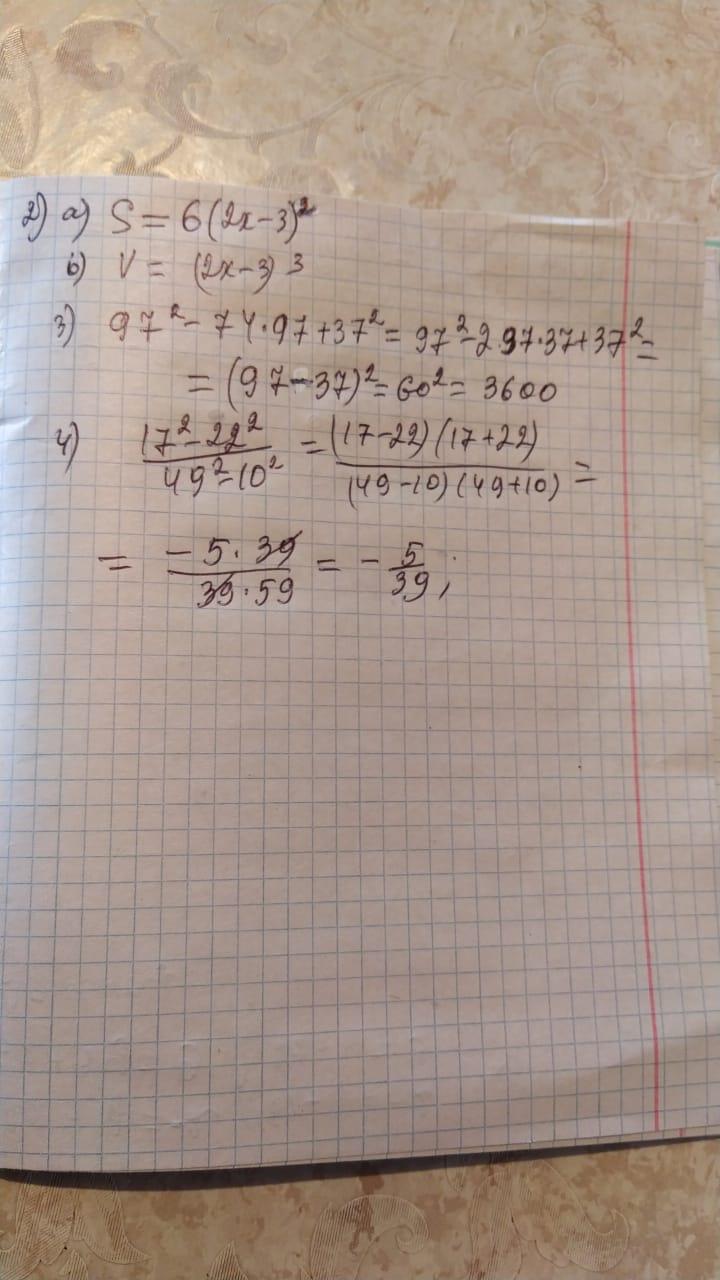 2) а) S = 6(2x-3)²
б) V = (2x-3)3
3) 97² - 74·97+37² = 97²-2 97·37+37² =
= (97-37)² = 60² = 3600
4) 17²-22² / 49²-10² = (17-22)(17+22) / (49-10)(49+10) =
= -5·39 / 39·59 = - 5/39;